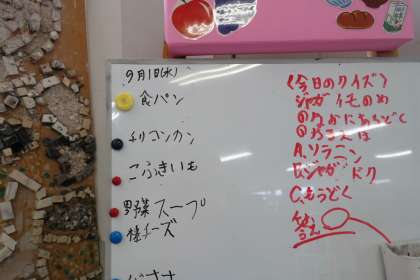 9月1日(水)
食パン
チリコンカン
こふきいも
野菜スープ
棒チーズ
《今日のクイズ》
ジャガイモのめ
のなかにあるどく
のなまえは
A.ソラニン
B.ジャガドク
C.もうどく